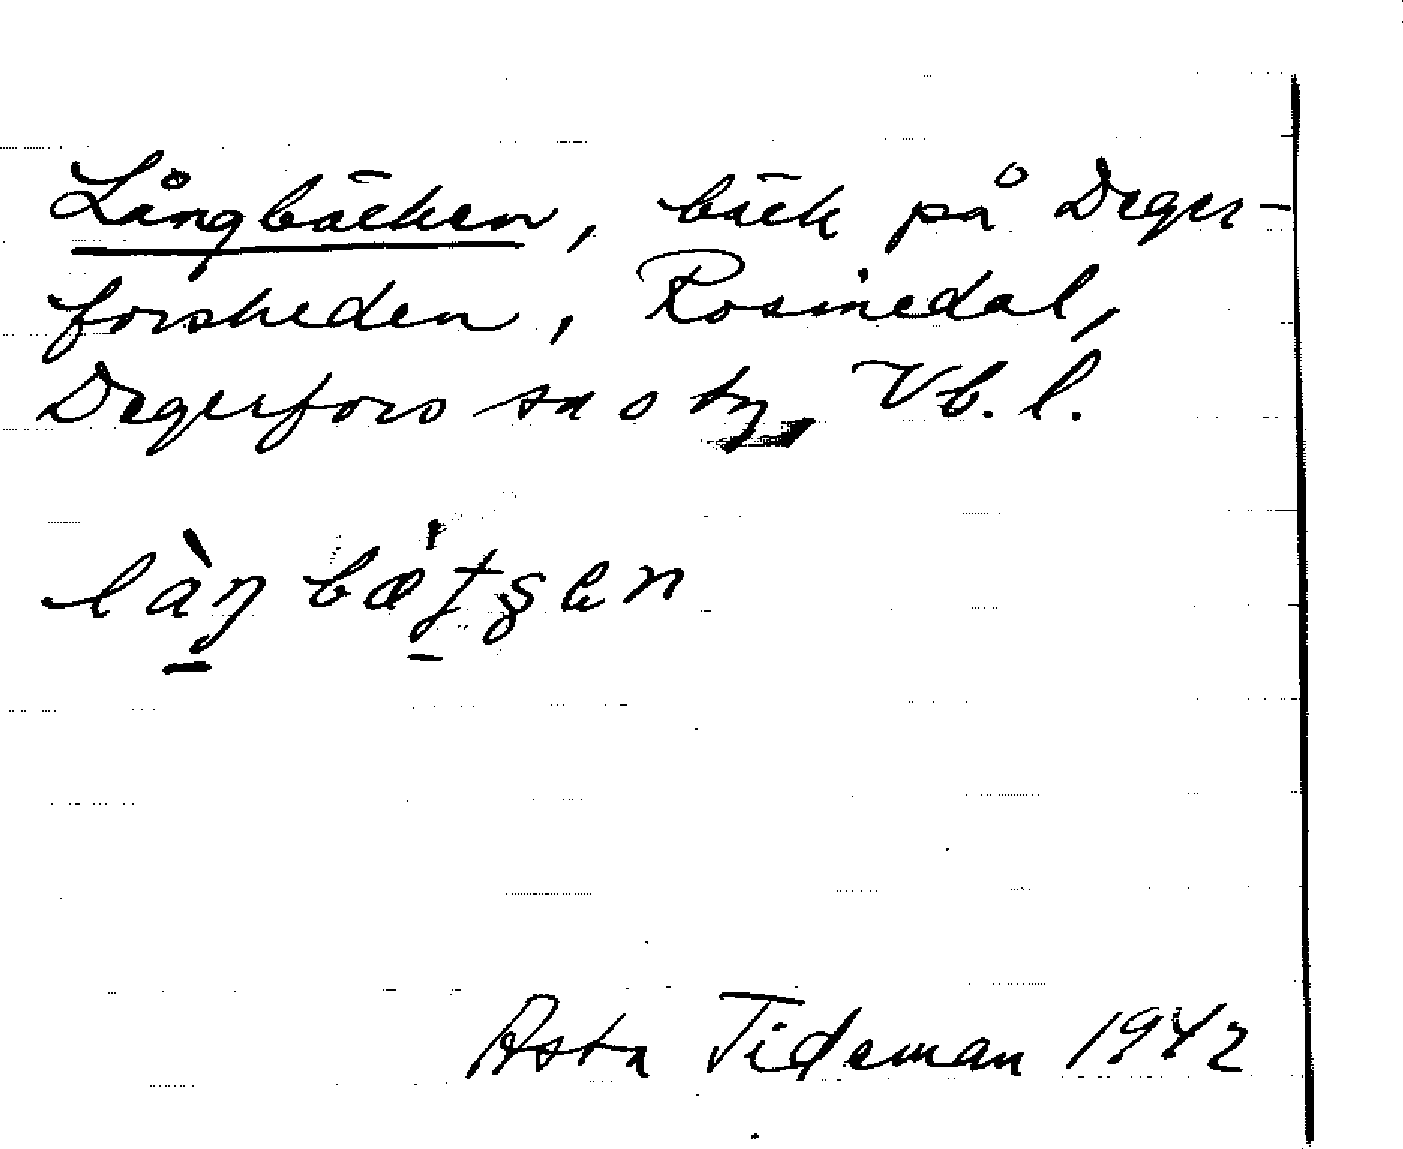 Långbäcken, bäck på Deger-
forsheden, Rosinedal,
Degerfors sn o tg, Vb. l.
làŋbætʂen
Asta Tideman 1942